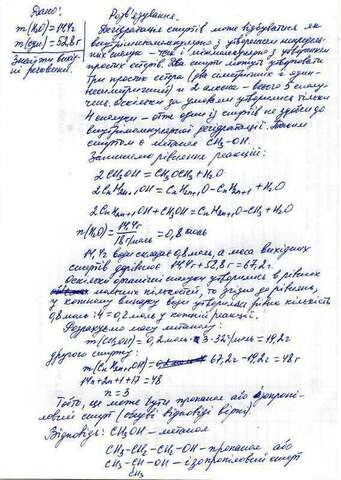 Дано:
m(H₂O) = 14,4г
m(суміші) = 52,8г
Знайти вихідні речовини.
Розв'язування.
Дегідратація спиртів може відбуватися як
внутрішньомолекулярно з утворенням
сполук – так і міжмолекулярно з утворенням
простих етерів. Два спирти можуть утворювати
три простих етера (два симетричних і один
несиметричний) та 2 алкени – всього 5 сполу-
чень, оскільки за умовою утворились тільки
4 сполуки – отже один із спиртів не здатен до
внутрішньомолекулярної дегідратації. Таким
спиртом є метанол CH₃–OH.
Запишемо рівняння реакцій:
2CH₃OH = CH₃OCH₃ + H₂O
2CnH2n+1OH = CnH2n+1O–CnH2n+1 + H₂O
CnH2n+1OH + CH₃OH = CnH2n+1O–CH₃ + H₂O
n(H₂O) = 14,4г / 18г/моль = 0,8 моль
14,4г води складає 0,8 моль, а маса вихідних
спиртів дорівнює 14,4г + 52,8г = 67,2г.
Оскільки органічні сполуки утворились в рівних
мольних кількостях, то згідно до рівнянь,
у кожному випадку води утворилась рівна кількість
0,8 моль : 4 = 0,2 моль у кожній реакції.
Розрахуємо масу метанолу:
m(CH₃OH) = 0,2 моль · 3 · 32г/моль = 19,2г
другого спирту:
m(CnH2n+1OH) = 67,2г – 19,2г = 48г
14n + 2n + 1 + 17 = 48
n = 3
Тобто, це може бути пропанол або ізопропі-
ловий спирт (обидві відповіді вірні).
Відповідь: CH₃OH – метанол
CH₃–CH₂–CH₂–OH – пропанол або
CH₃–CH–OH – ізопропіловий спирт
CH₃